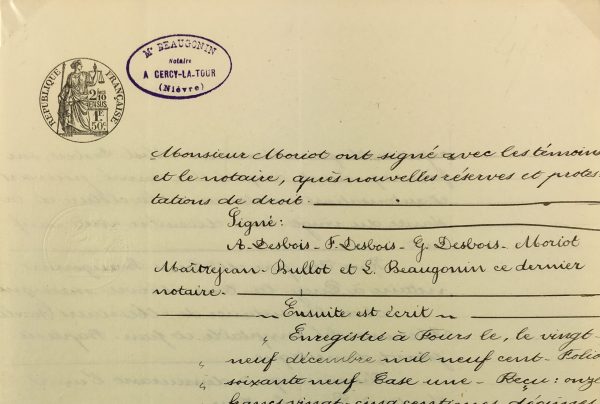 RÉPUBLIQUE FRANÇAISE
2/10
EN SUS
1F
50c
Me BEAUGONIN
Notaire
A CERCY-LA-TOUR
(Nièvre)
Monsieur Moriot ont signé avec les témoins
et le notaire, après nouvelles réserves et protes
tations de droit.
Signé:
A. Desbois - F. Desbois - G. Desbois - Moriot
Maîtrejean - Bullot et L. Beaugonin ce dernier
notaire.
Ensuite est écrit
" Enregistré à Fours le, vingt-
" neuf décembre mil neuf cent - Folio
" soixante neuf - Case une - Reçu: onze
francs vingt-cinq centimes, décimes